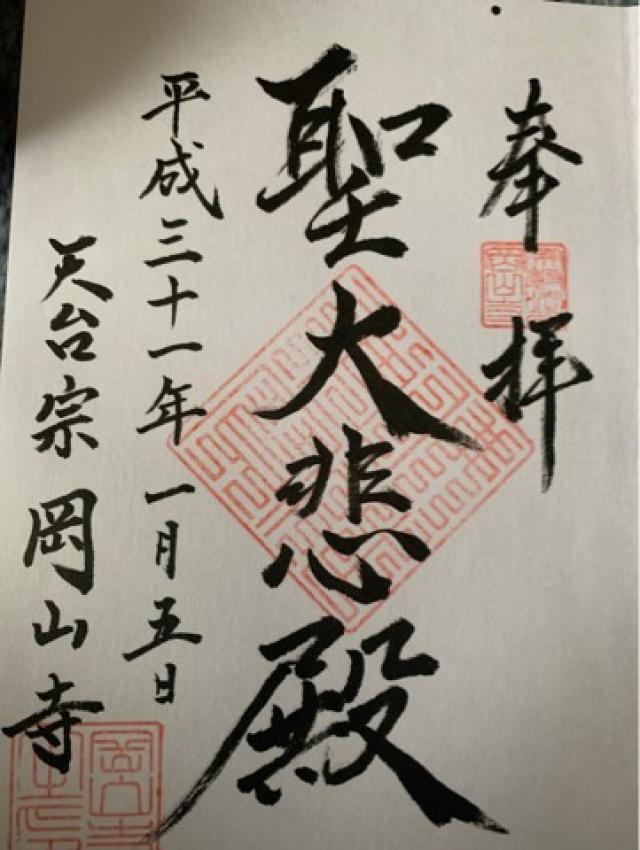 奉拝
聖大悲殿
平成三十一年一月五日
天台宗岡山寺